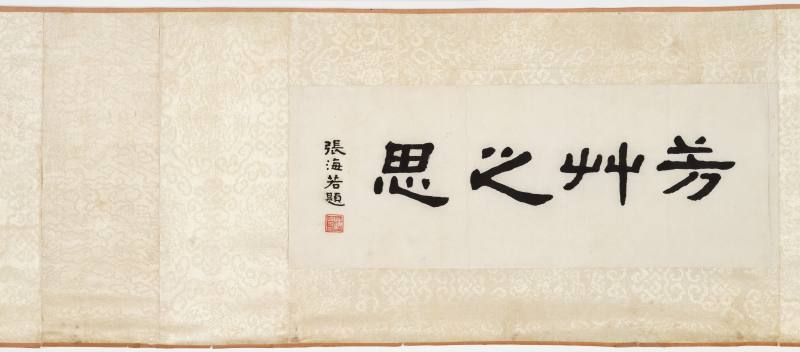 芳艸之思
張海若題